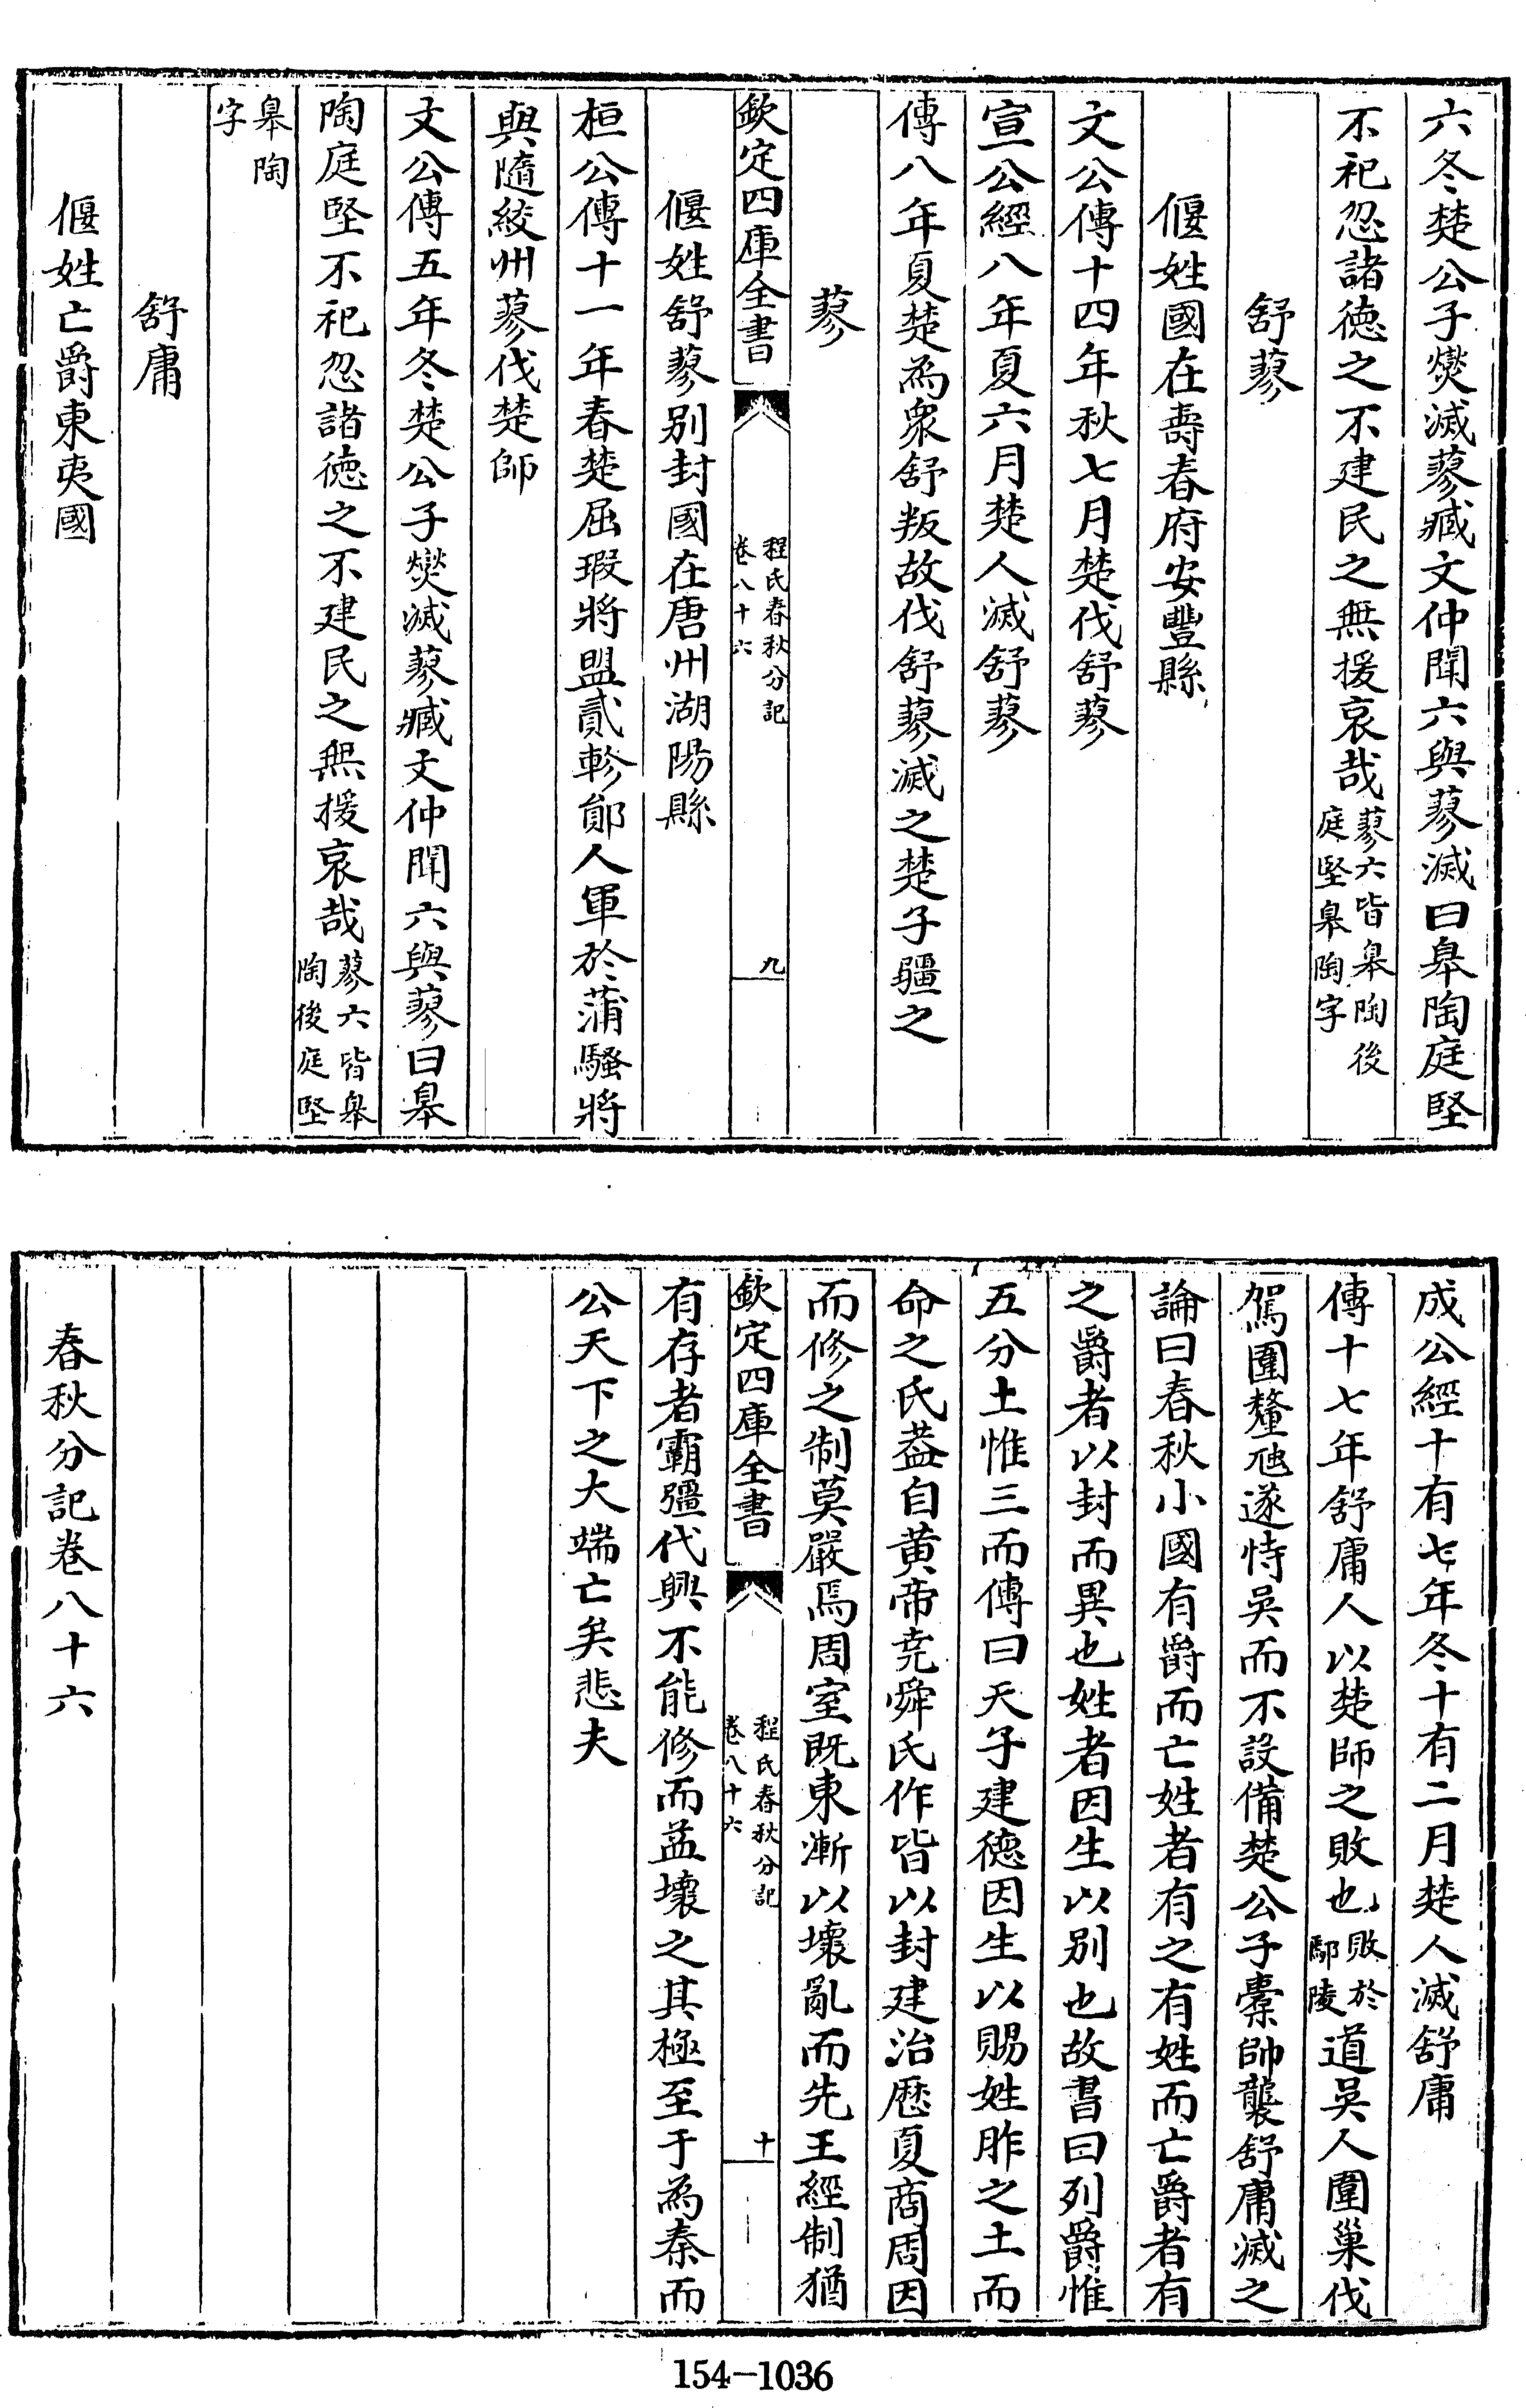 六冬楚公子燮滅蓼臧文仲聞六與蓼滅曰臯陶庭堅
不祀忽諸德之不建民之無援哀哉蓼六皆臯陶後庭堅臯陶字
舒蓼
偃姓國在壽春府安豐縣
文公傳十四年秋七月楚伐舒蓼
宣公經八年夏六月楚人滅舒蓼
傳八年夏楚為衆舒叛故伐舒蓼滅之楚子疆之
蓼
欽定四庫全書
程氏春秋分記
卷八十六
九
偃姓舒蓼别封國在唐州湖陽縣
桓公傳十一年春楚屈瑕將盟貳軫鄖人軍於蒲騷將
與隨絞州蓼伐楚師
文公傳五年冬楚公子燮滅蓼臧文仲聞六與蓼曰臯
陶庭堅不祀忽諸德之不建民之無援哀哉蓼六皆臯陶後庭堅
臯陶字
舒庸
偃姓亡爵東夷國
成公經十有七年冬十有二月楚人滅舒庸
傳十七年舒庸人以楚師之敗也敗於鄢陵道吳人圍巢伐
駕圍釐虺遂恃吳而不設備楚公子橐帥襲舒庸滅之
論曰春秋小國有爵而亡姓者有之有姓而亡爵者有
之爵者以封而異也姓者因生以别也故書曰列爵惟
五分土惟三而傳曰天子建德因生以賜姓胙之土而
命之氏葢自黄帝尭舜氏作皆以封建治歴夏商周因
而修之制莫嚴焉周室既東漸以壞亂而先王經制猶
欽定四庫全書
程氏春秋分記
卷八十六
十
有存者霸彊代興不能修而益壞之其極至于為秦而
公天下之大端亡矣悲夫
春秋分記卷八十六
154-1036